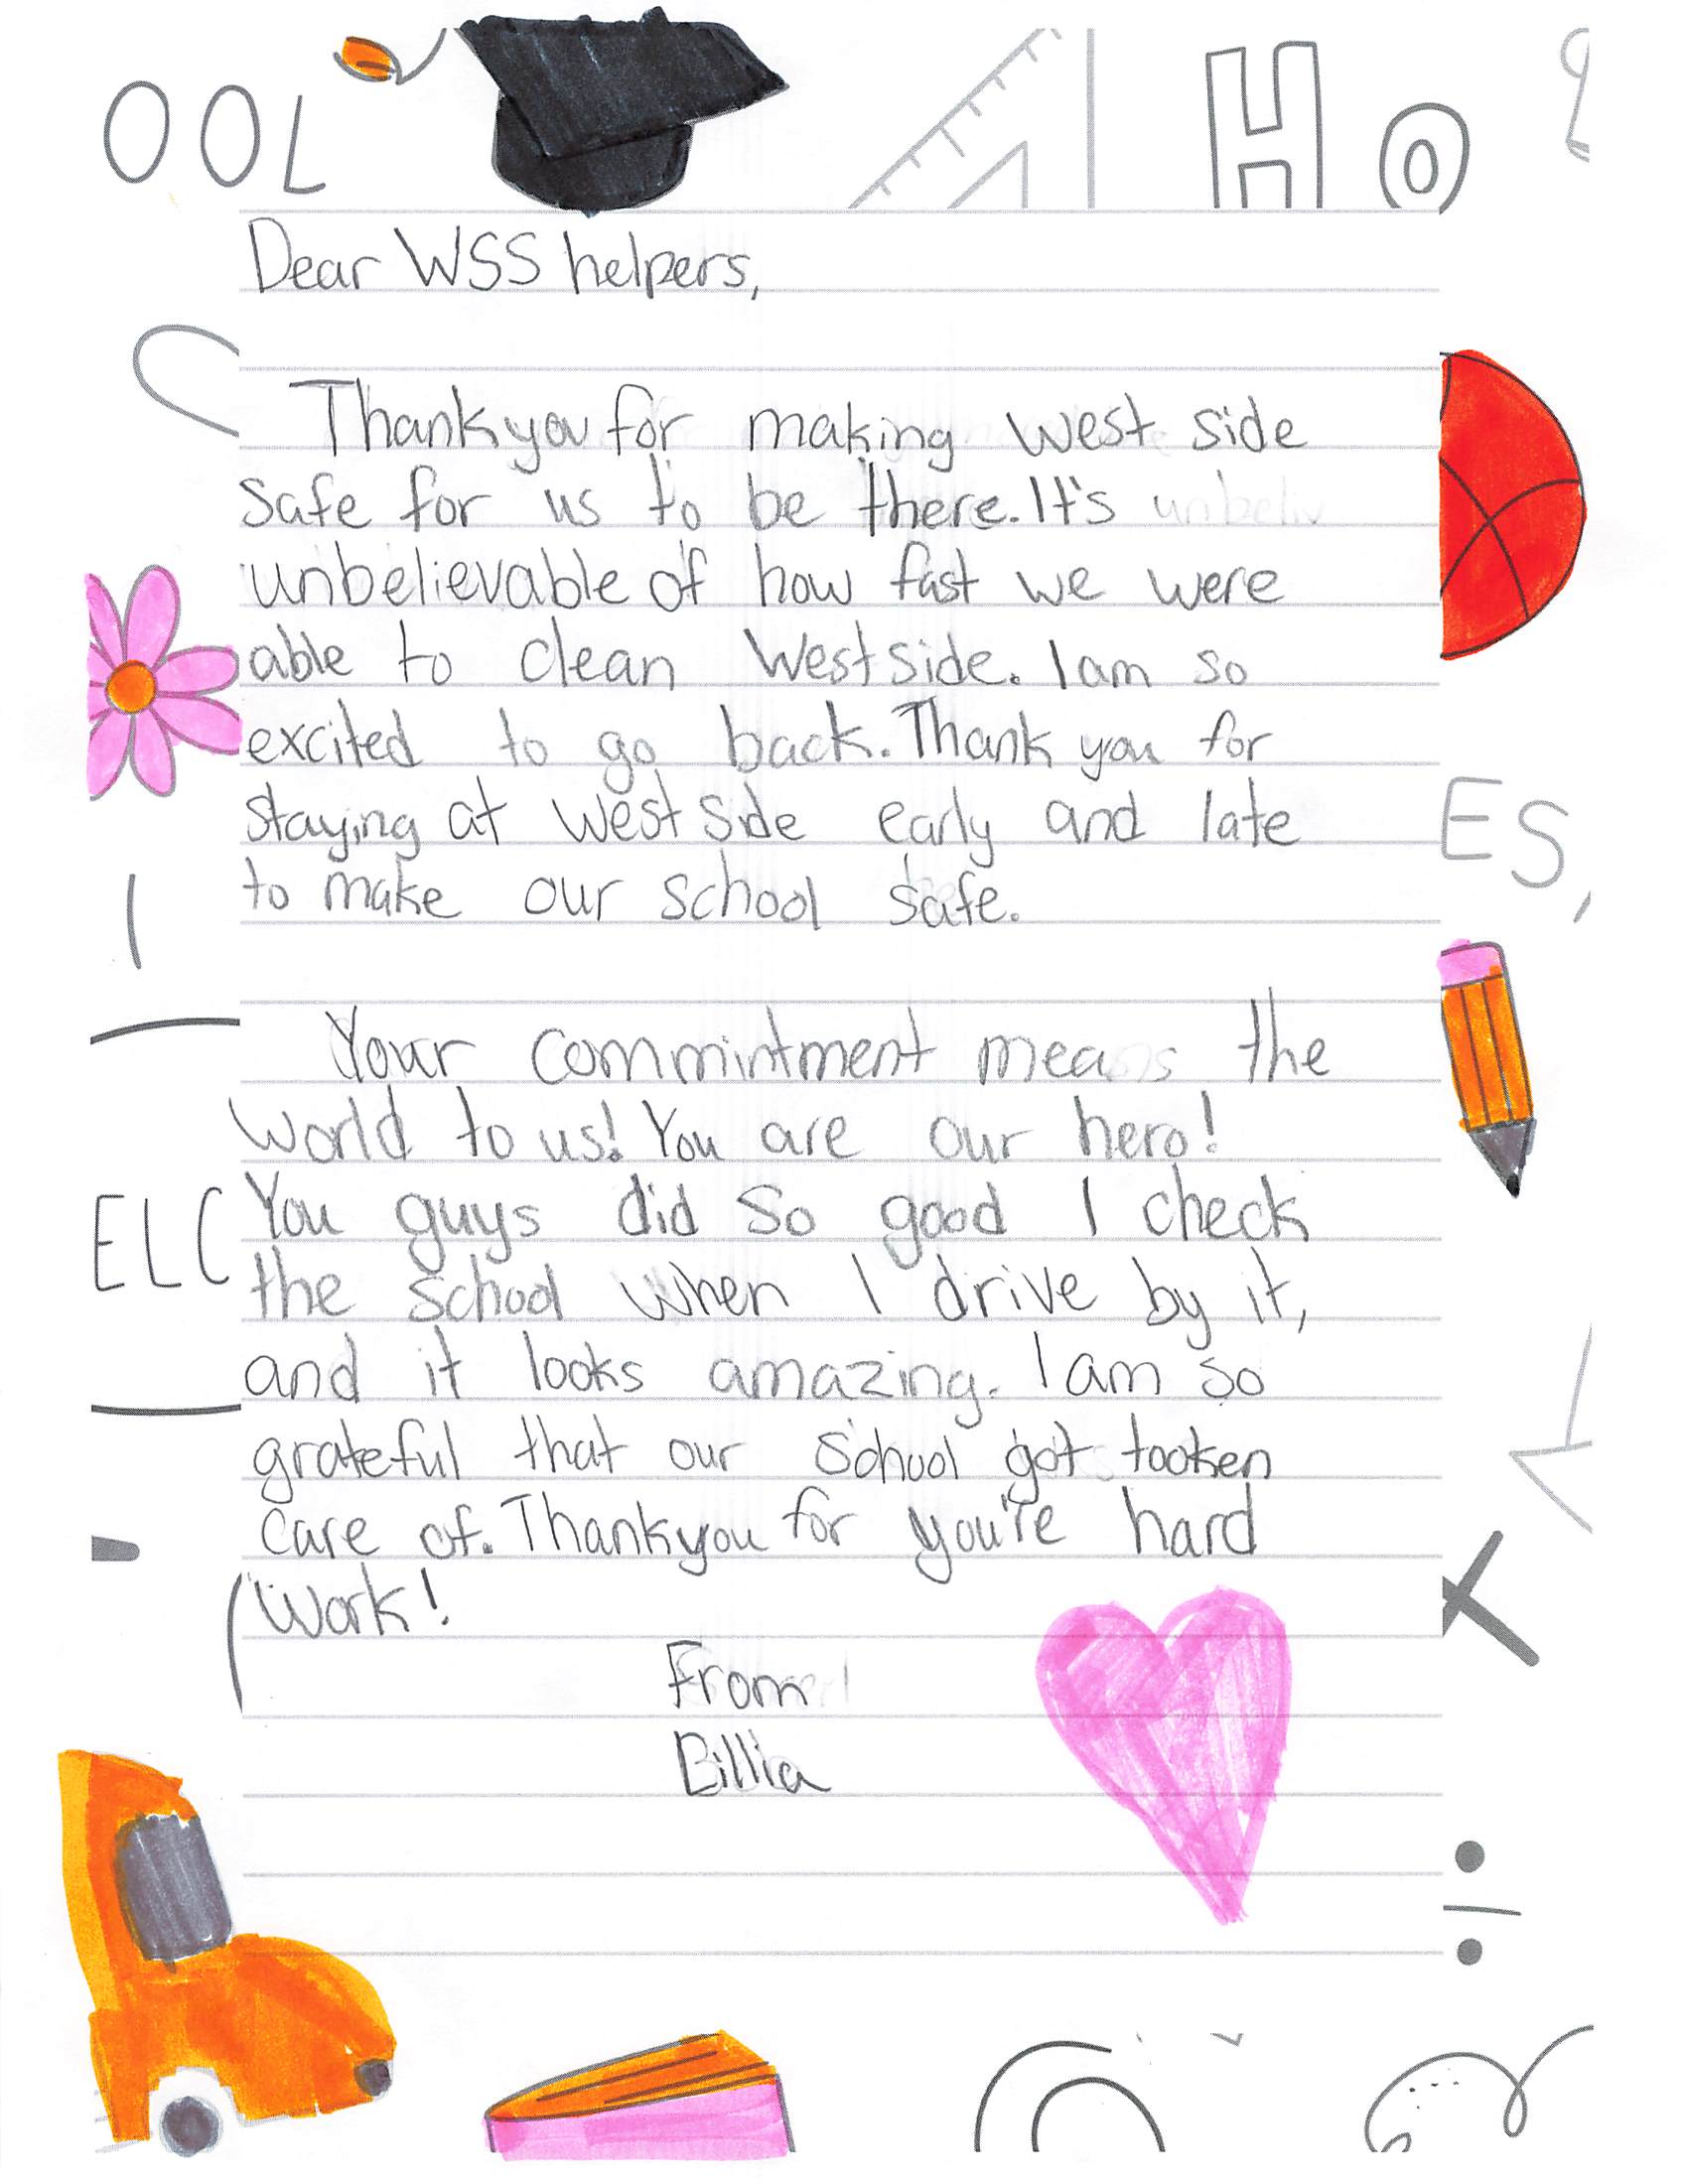 OOL
Ho
Dear WSS helpers,
Thank you for making west side
safe for us to be there. It's unbeliv
unbelievable of how fast we were
able to clean West side. I am so
excited to go back. Thank you for
staying at west side early and late
ES,
to make our school safe.
Your commintment means the
world to us! You are our hero!
You guys did so good I check
ELC
the school when I drive by it,
and it looks amazing. I am so
grateful that our school got tooken
care of. Thank you for you're hard
work!
From
Billia